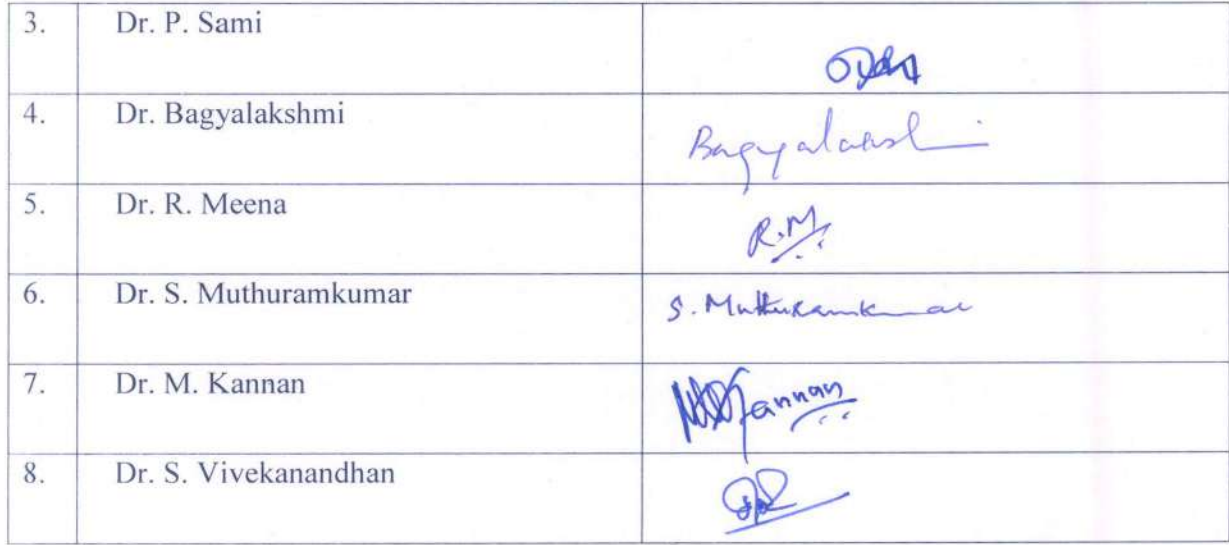 3. Dr. P. Sami
4. Dr. Bagyalakshmi Bagyalakshmi
5. Dr. R. Meena R.M
6. Dr. S. Muthuramkumar S. Muthuramkumar
7. Dr. M. Kannan Kannan
8. Dr. S. Vivekanandhan